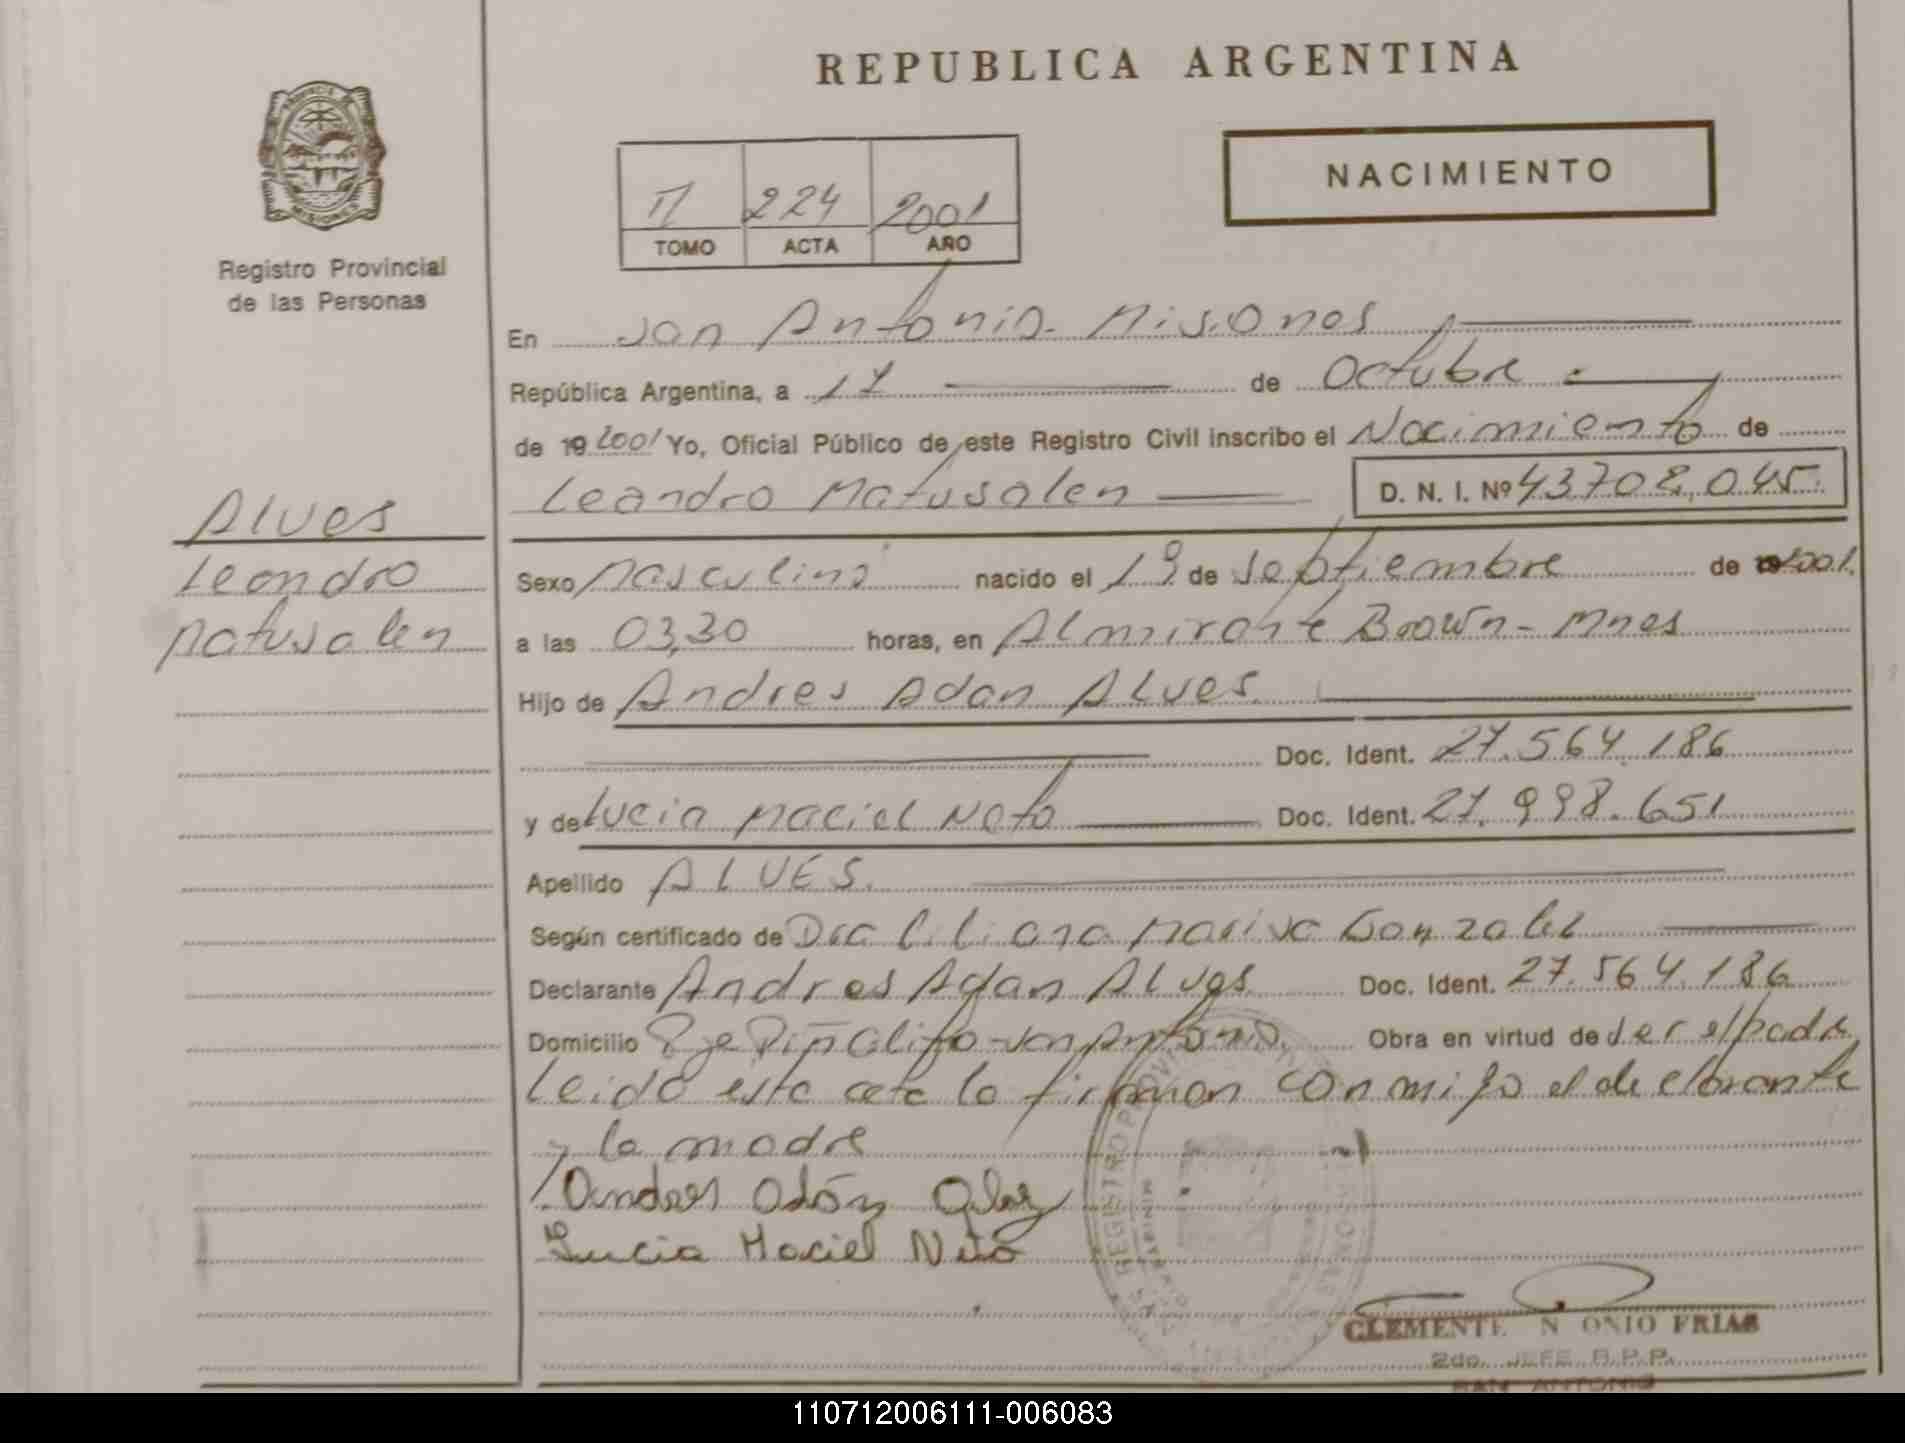 REPUBLICA ARGENTINA
PROVINCIA DE
MISIONES
Registro Provincial
de las Personas
NACIMIENTO
II 224 2001
TOMO ACTA AÑO
En San Antonio - Misiones
República Argentina, a 17 de Octubre
de 19 2001 Yo, Oficial Público de este Registro Civil inscribo el Nacimiento de
Leandro Matusalen D. N. I. Nº 43.708.045
Alves
Leandro
Matusalen
Sexo Masculino nacido el 19 de Septiembre de 19 2001.
a las 03,30 horas, en Almirante Brown - Mnes
Hijo de Andres Adan Alves
Doc. Ident. 27.564.186
y de Lucia Maciel Neto Doc. Ident. 27.998.651
Apellido ALVES.
Según certificado de Dra Liliana Gonzalez
Declarante Andres Adan Alves Doc. Ident. 27.564.186
Domicilio Pje Piñalito - San Antonio. Obra en virtud de ser el padre
Leida esta acta la firman conmigo el declarante
y la madre
Andres Adán Alves
Lucia Maciel Neto
REGISTRO PROVINCIAL
CLEMENTE N ONIO FRIAS
2do. JEFE R.P.P.
SAN ANTONIO
110712006111-006083